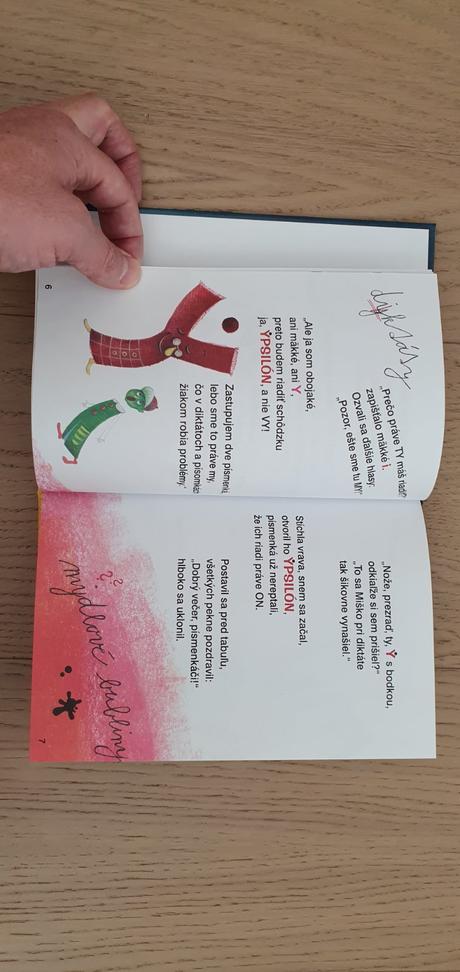 „Prečo práve TY máš riadiť?“
zapišťalo mäkké i.
Ozvali sa ďalšie hlasy:
„Pozor, ešte sme tu MY!“
„Ale ja som obojaké,
ani mäkké, ani Y,
preto budem riadiť schôdzku
ja, ẎPSILÓN, a nie VY!
Zastupujem dve písmenká,
lebo sme to práve my,
čo v diktátoch a písomkách
žiakom robia problémy.“
6
„Nože, prezraď, ty, Ẏ s bodkou,
odkiaľže si sem prišiel?“
„To sa Miško pri diktáte
tak šikovne vynašiel.“
Stíchla vrava, snem sa začal,
otvoril ho ẎPSILÓN,
písmenká už nereptali,
že ich riadi práve ON.
Postavil sa pred tabuľu,
všetkých pekne pozdravil:
„Dobrý večer, písmenkáči!“
hlboko sa uklonil.
? ?
mydlové bubliny
7